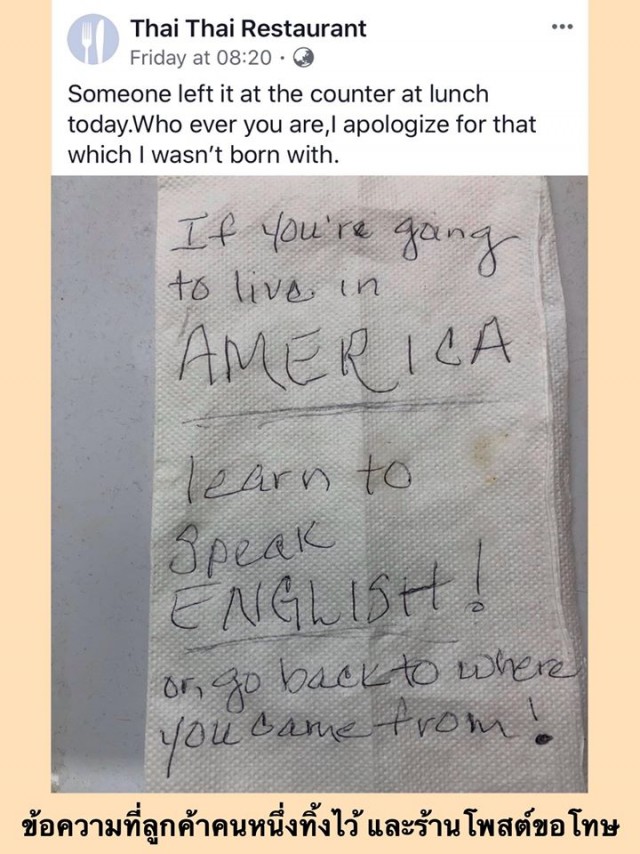 Thai Thai Restaurant
Friday at 08:20 ·
Someone left it at the counter at lunch
today.Who ever you are,I apologize for that
which I wasn't born with.
If you're going
to live in
AMERICA
learn to
speak
ENGLISH!
or, go back to where
you came from!
ข้อความที่ลูกค้าคนหนึ่งทิ้งไว้ และร้านโพสต์ขอโทษ